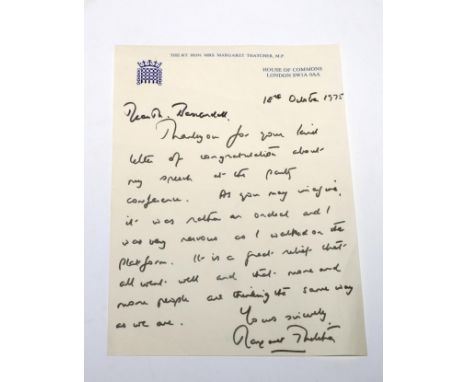 THE RT. HON. MRS. MARGARET THATCHER, M.P.
HOUSE OF COMMONS
LONDON SW1A 0AA
18th October 1975
Dear Mr.
Thank you for your kind
letter of congratulation about
my speech at the party
conference. As you may imagine,
it was rather an ordeal and I
was very nervous as I walked on the
platform. It is a great relief that
all went well and that more and
more people are thinking the same way
as we are.
Yours sincerely,
Margaret Thatcher